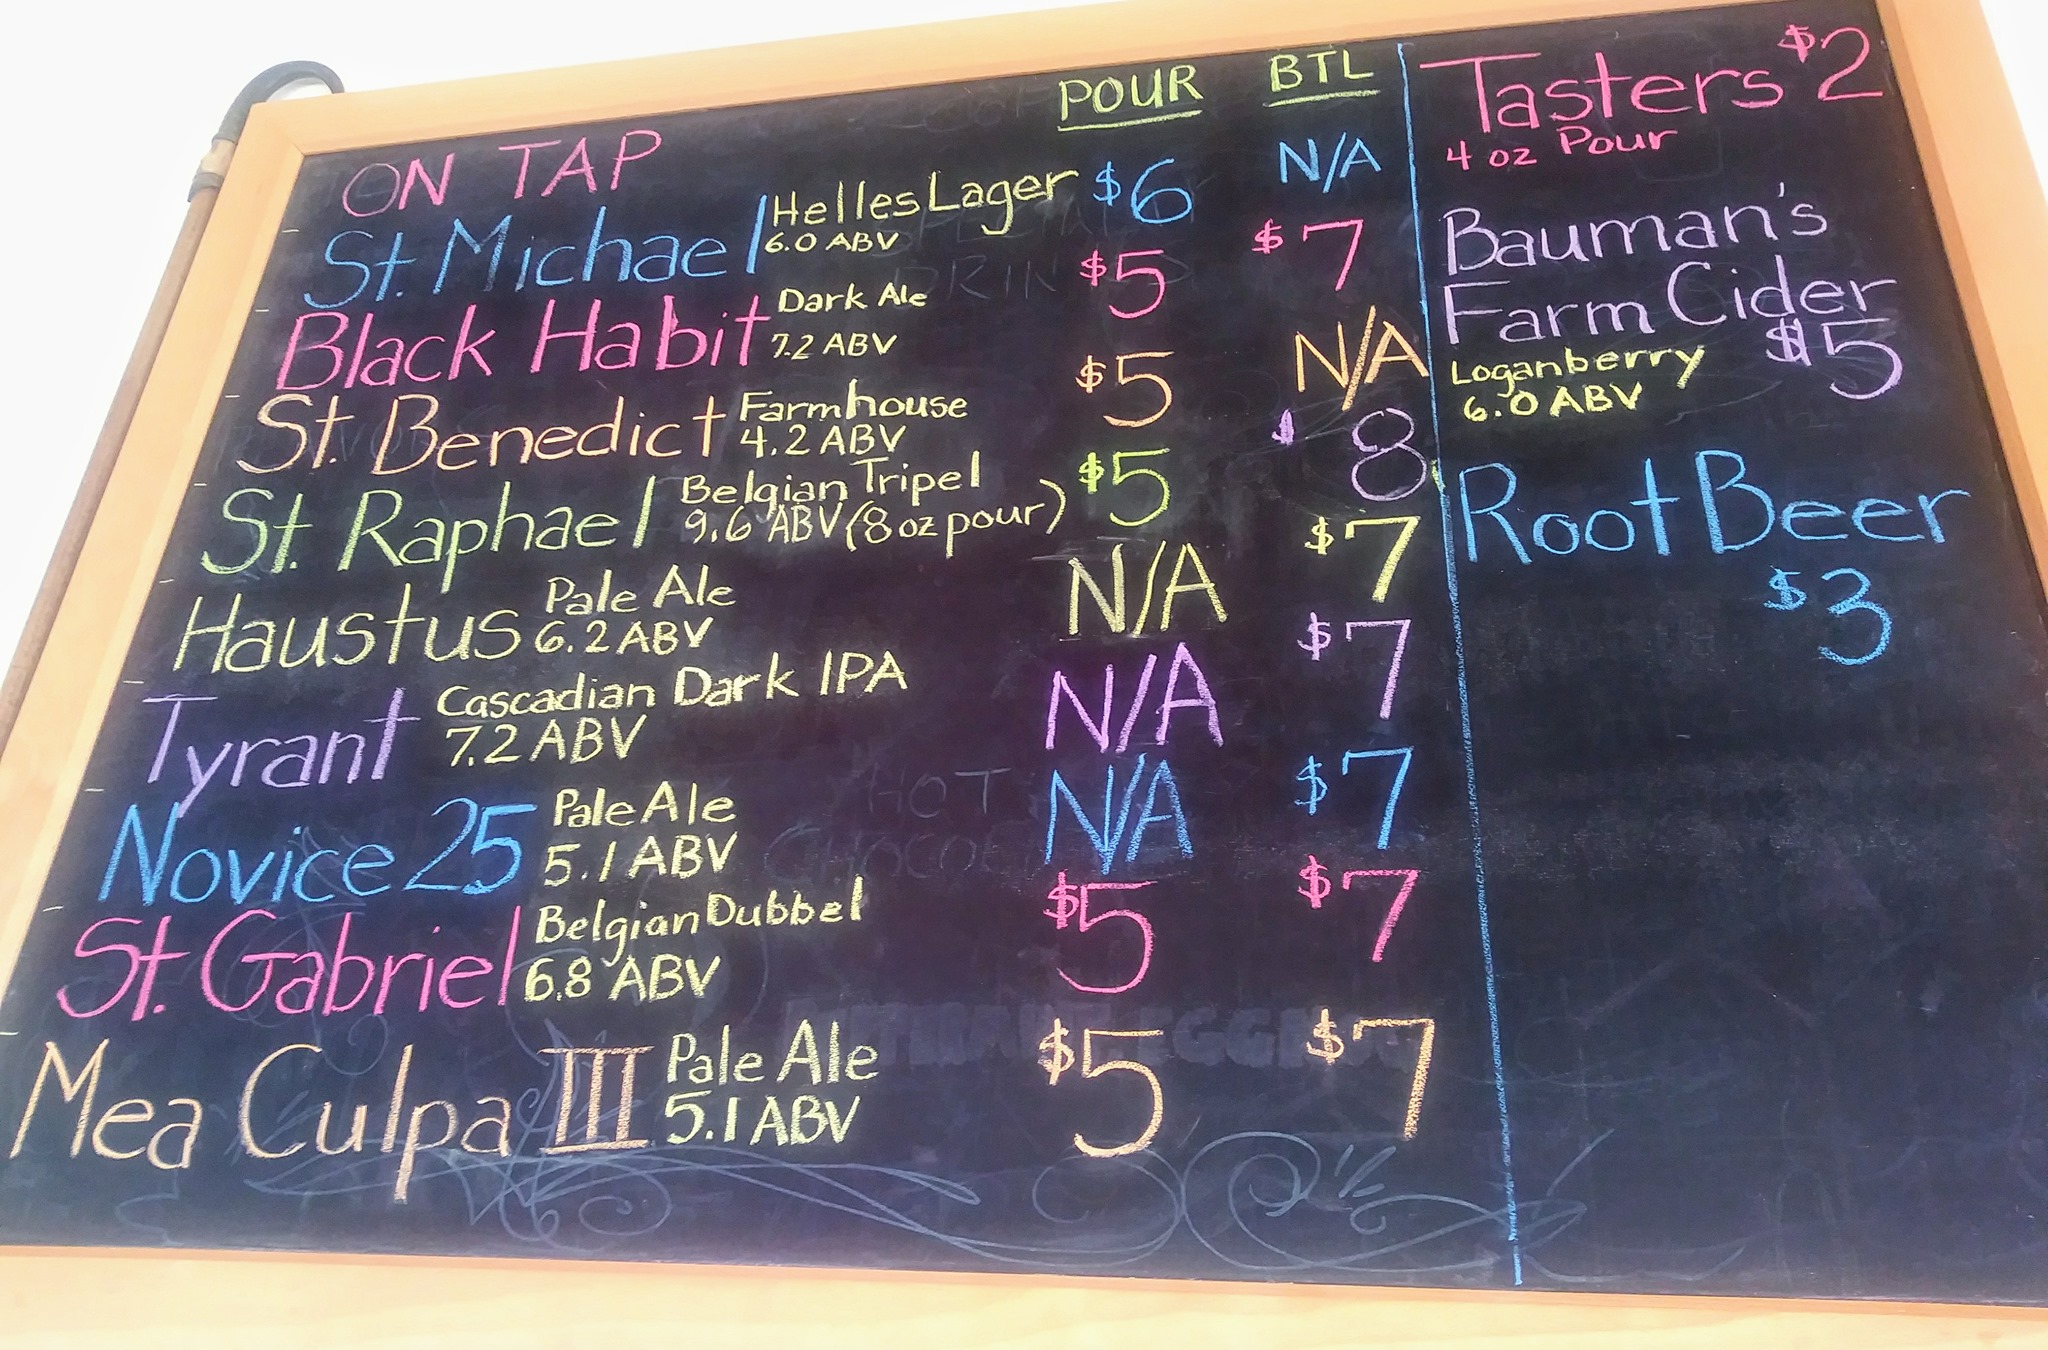 POUR BTL
ON TAP
St. Michael Helles Lager $6 N/A
6.0 ABV
Black Habit Dark Ale $5 $7
7.2 ABV
St. Benedict Farmhouse $5 N/A
4.2 ABV
St. Raphael Belgian Tripel $5 $8
9.6 ABV (8 oz pour)
Haustus Pale Ale N/A $7
6.2 ABV
Tyrant Cascadian Dark IPA N/A $7
7.2 ABV
Novice 25 Pale Ale N/A $7
5.1 ABV
St. Gabriel Belgian Dubbel $5 $7
6.8 ABV
Mea Culpa III Pale Ale $5 $7
5.1 ABV
Tasters $2
4 oz Pour
Bauman's
Farm Cider
Loganberry $5
6.0 ABV
Root Beer
$3